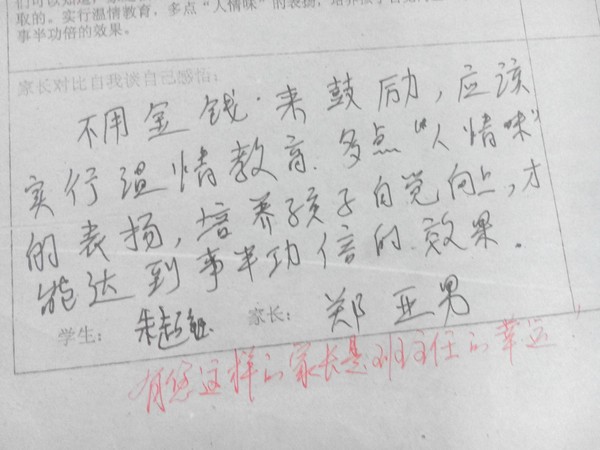 取的。实行温情教育，多点“人情味”的表扬，培养孩子自觉向
事半功倍的效果。
家长对比自我谈自己感悟：
不用金钱·来鼓励，应该
实行温情教育．多点“人情味”
的表扬，培养孩子自觉向上，才
能达到事半功倍的效果．
学生：朱超 家长：郑亚男
有您这样的家长是班主任的幸运！